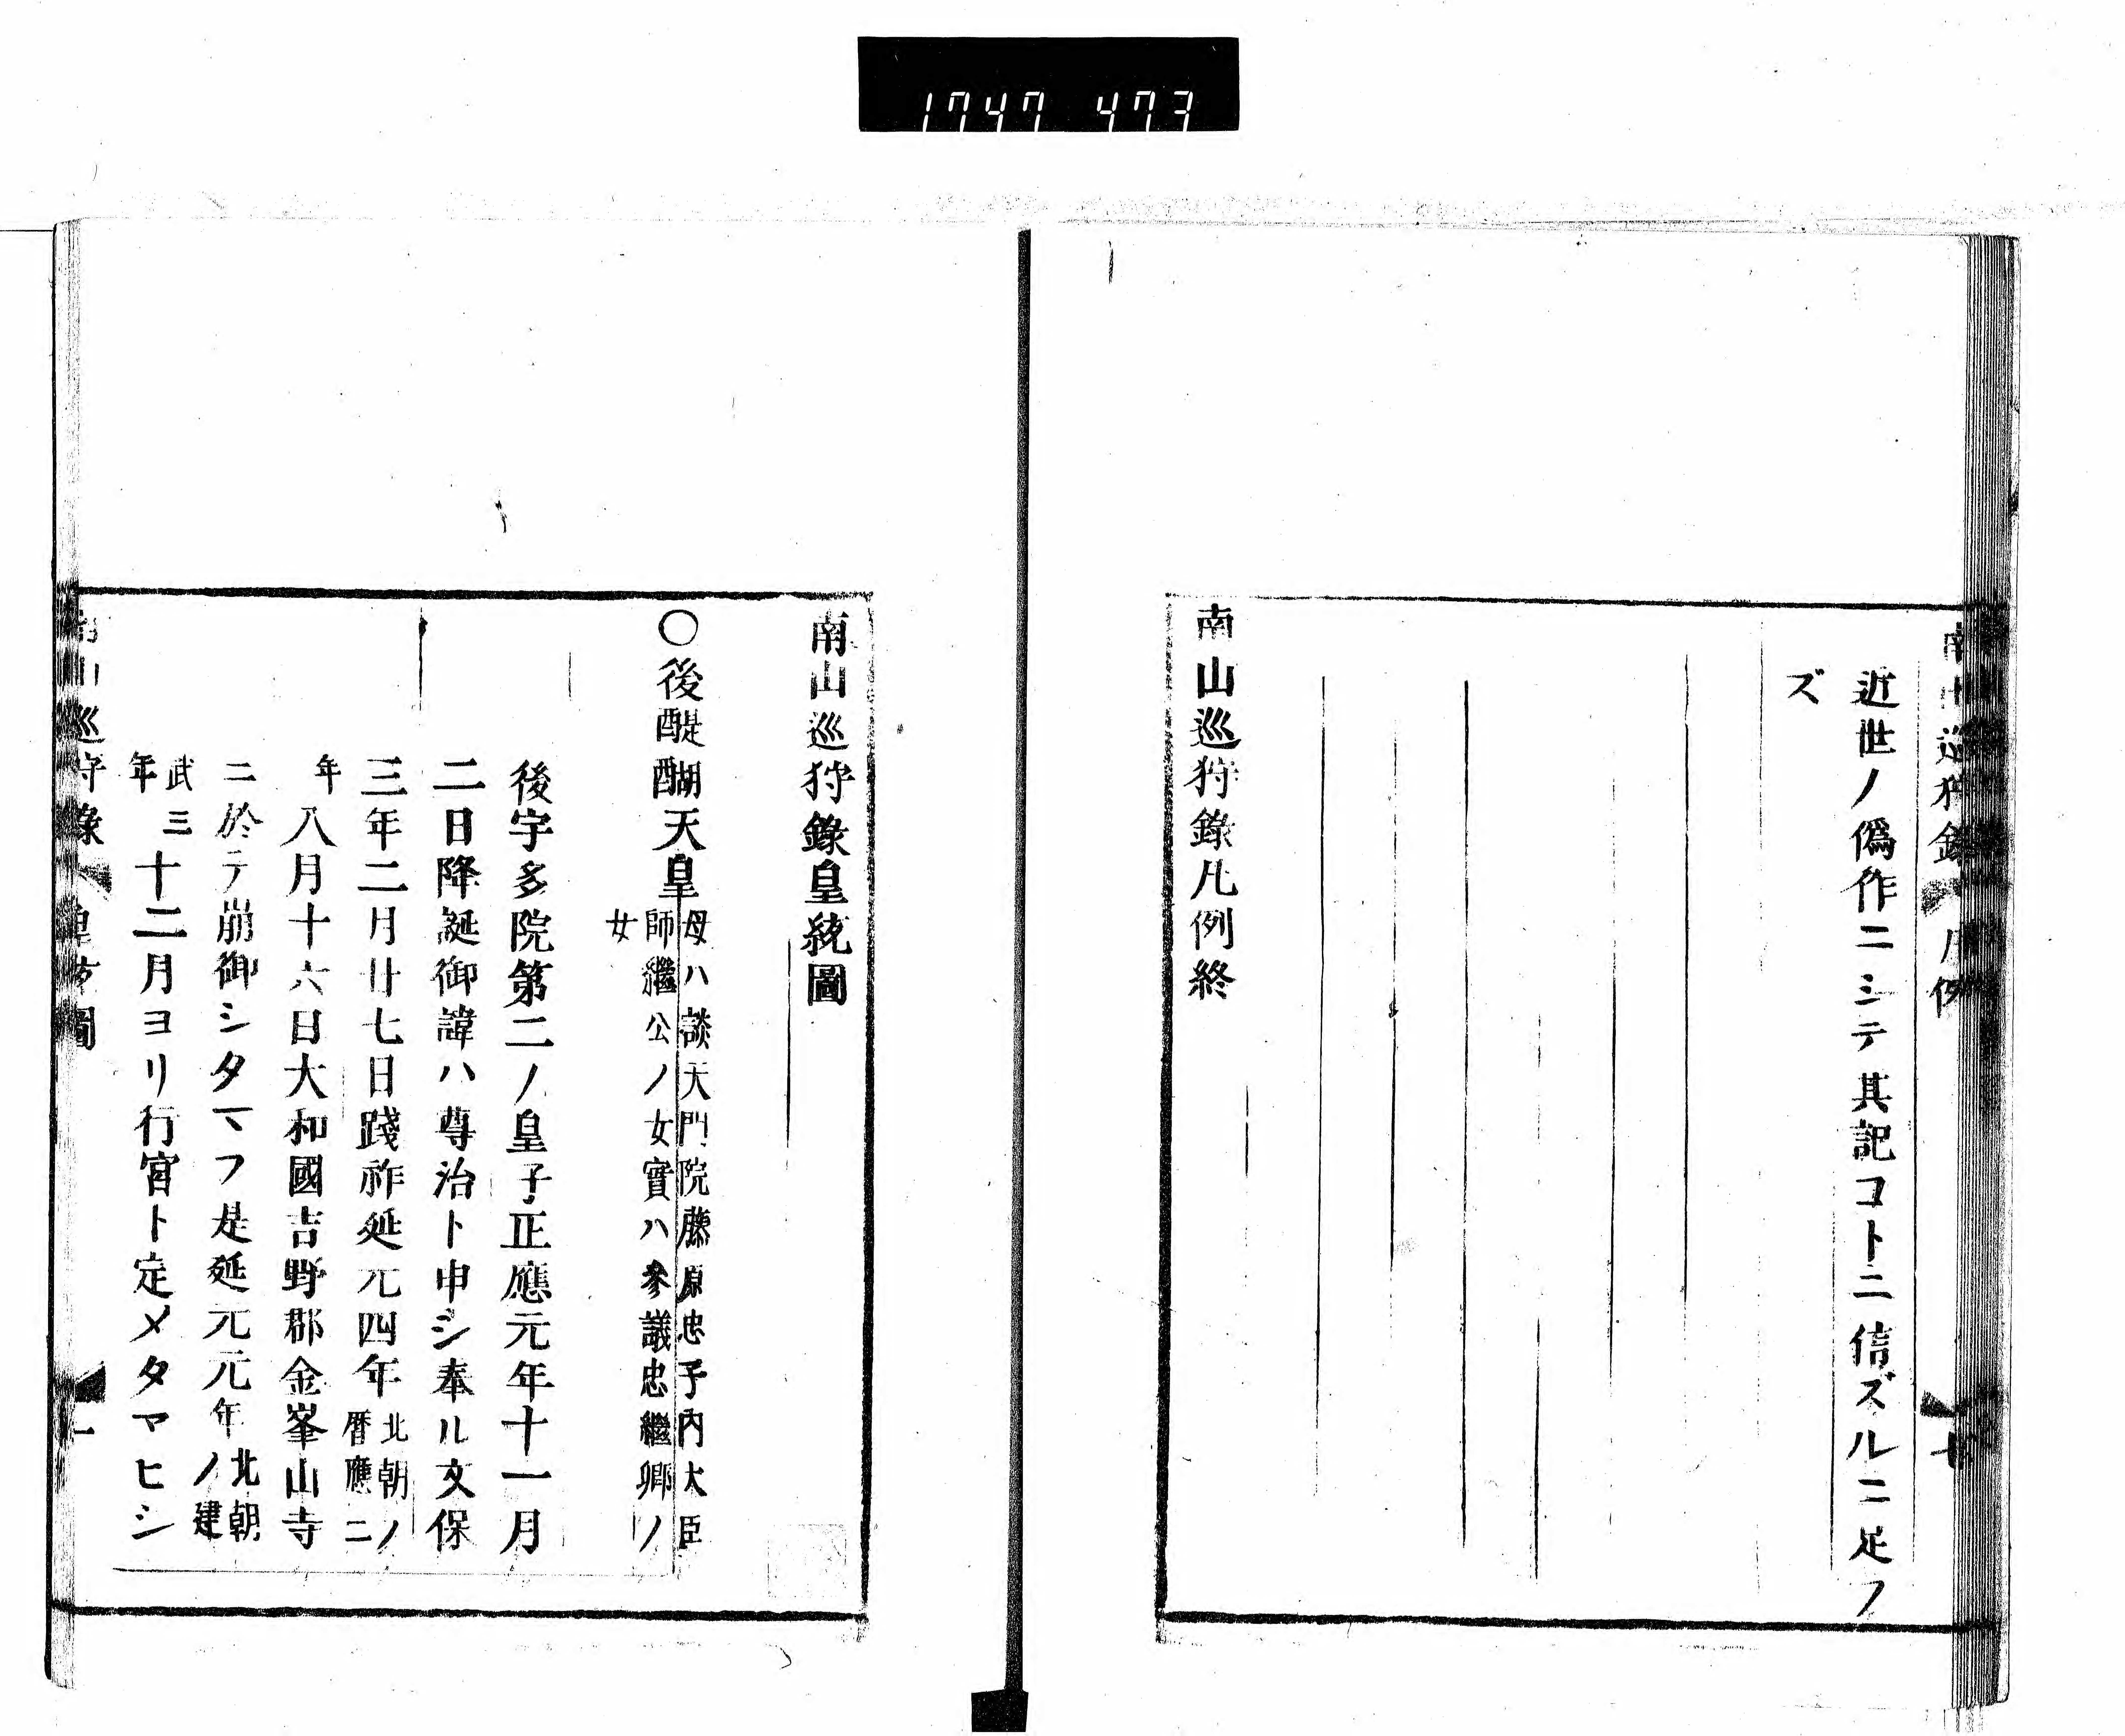 1747 473
近世ノ僞作ニシテ其記コトニ信ズルニ足ラ
ズ
南山巡狩錄凡例終
南山巡狩錄皇統圖
○後醍醐天皇
母ハ談天門院藤原忠子内大臣
師繼公ノ女實ハ參議忠繼卿ノ
女
後宇多院第二ノ皇子正應元年十一月
二日降誕御諱ハ尊治ト申シ奉ル文保
三年二月廿七日踐祚延元四年北朝ノ
暦應二
年八月十六日大和國吉野郡金峯山寺
ニ於テ崩御シタマフ是延元元年北朝
ノ建
武三
年十二月ヨリ行宮ト定メタマヒシ